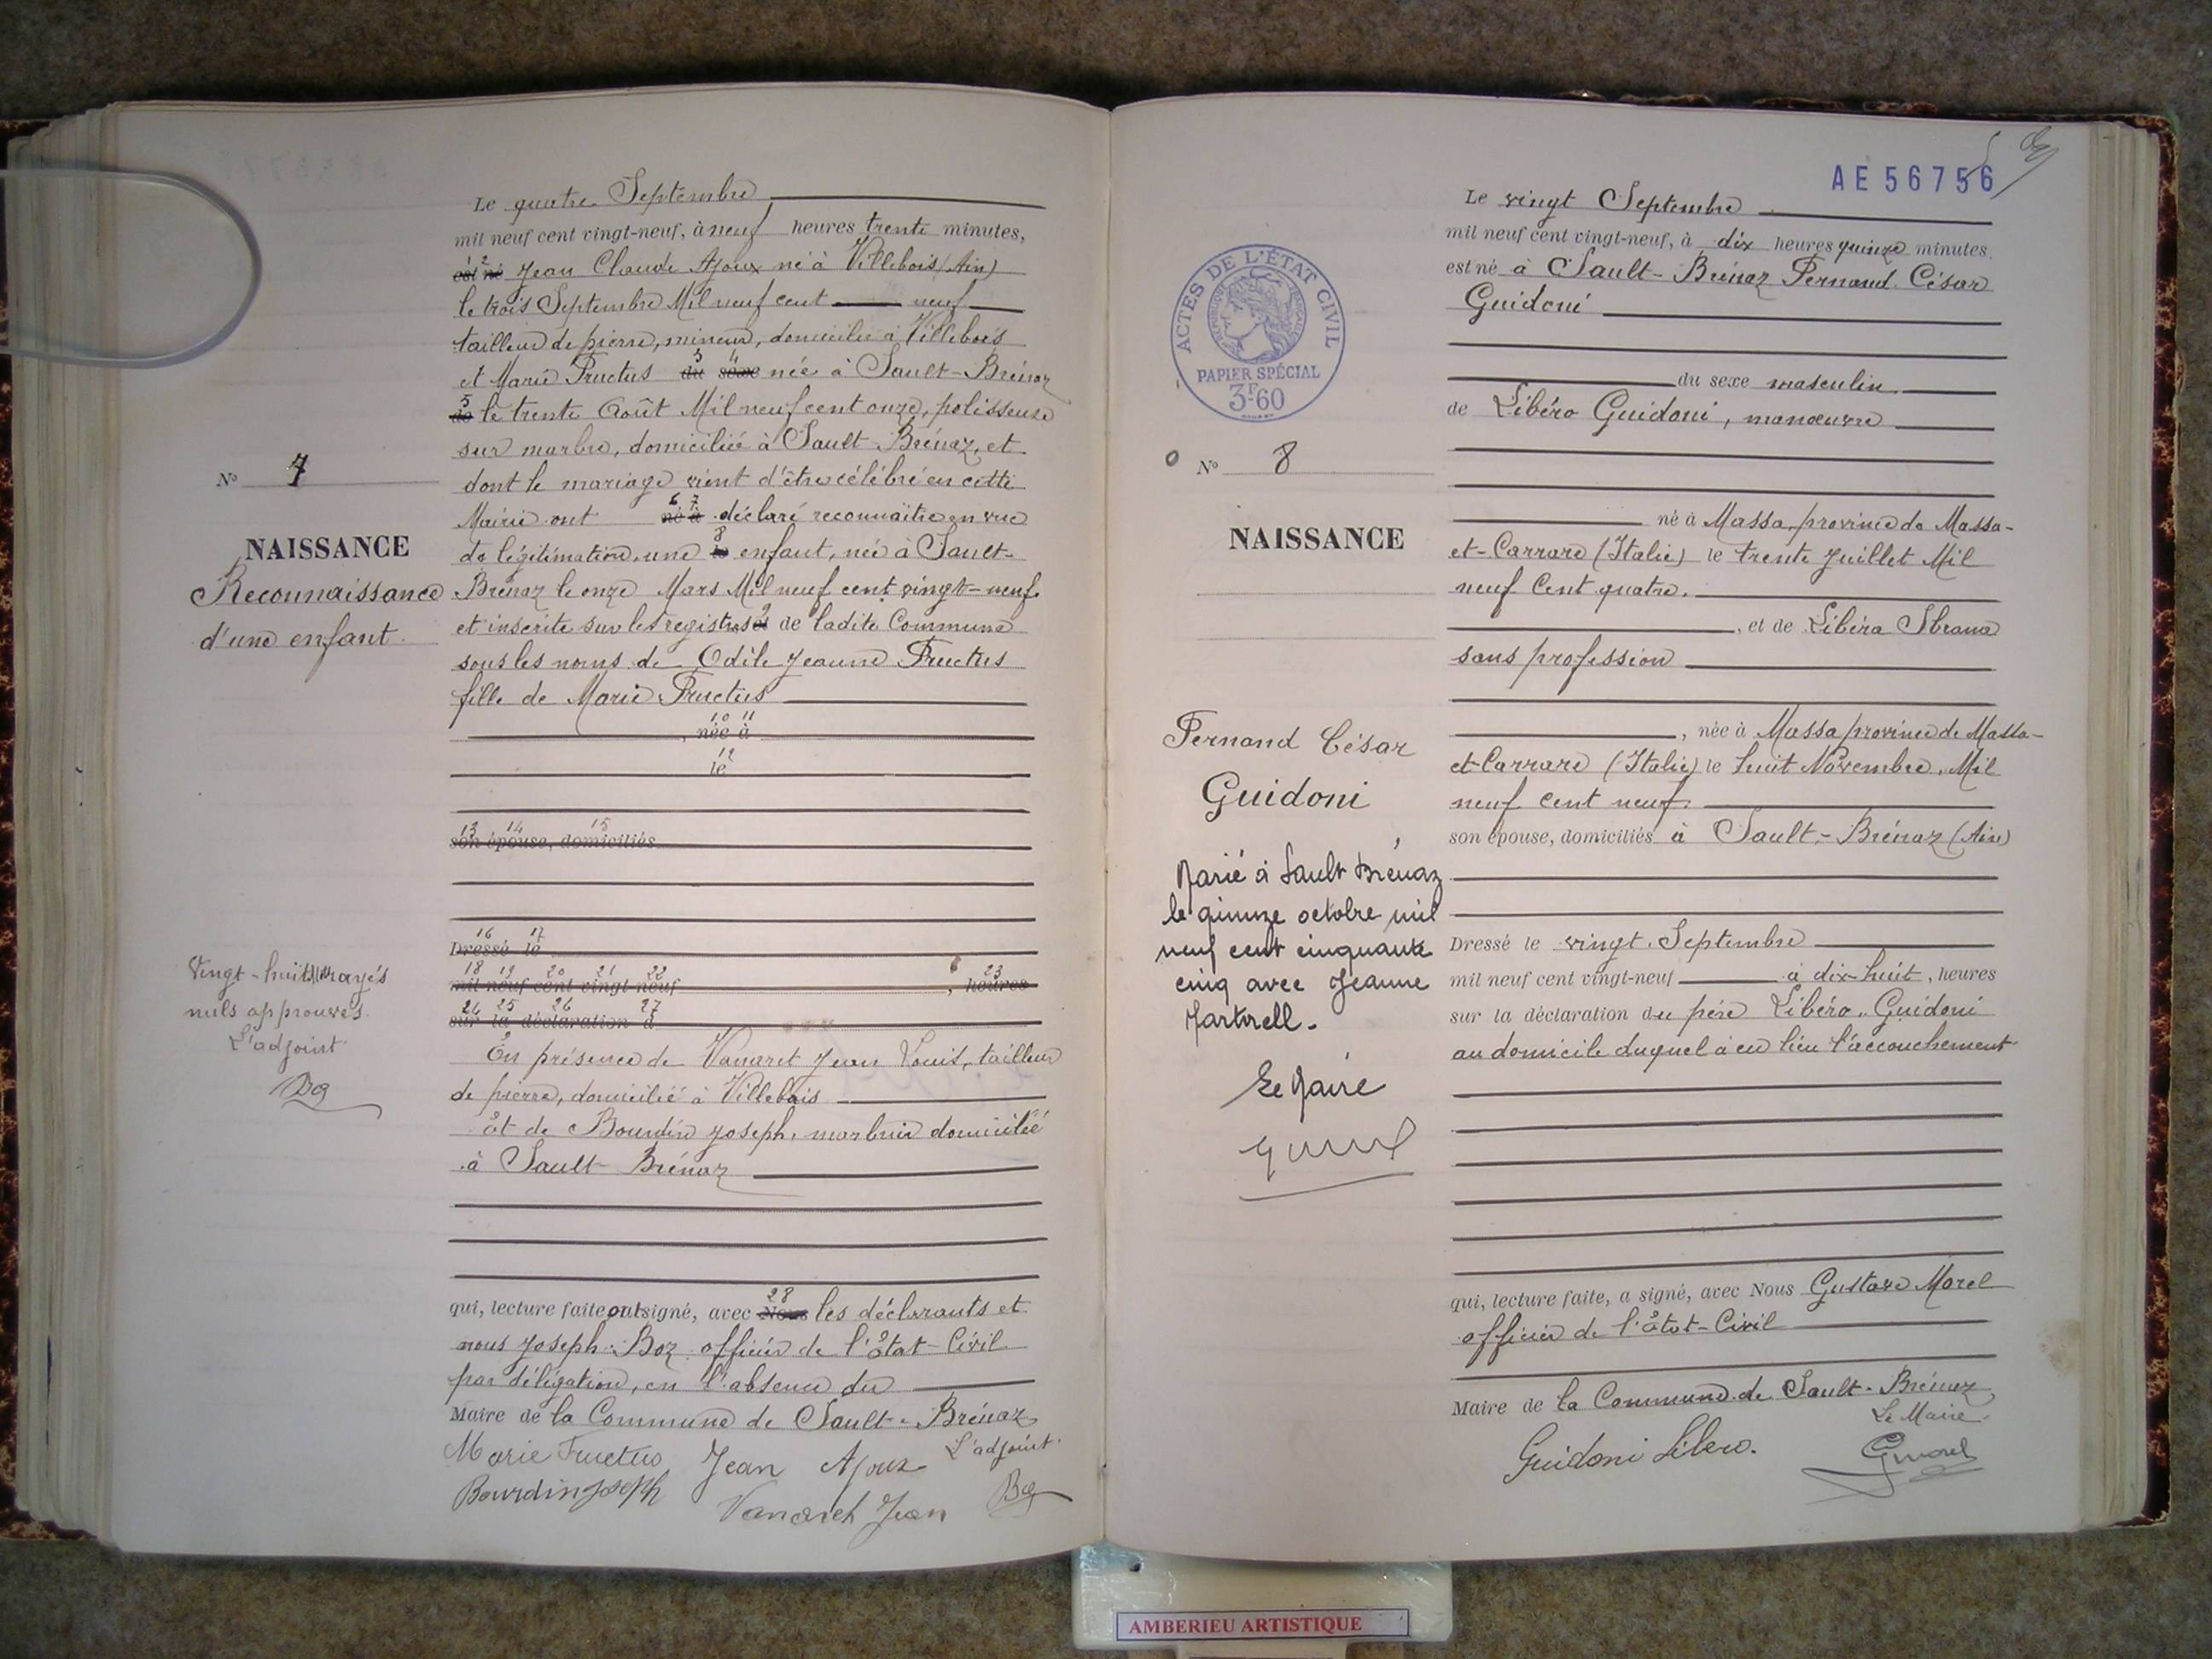 Le quatre Septembre
mil neuf cent vingt-neuf, à neuf heures trente minutes,
est né Jean Claude Ajoux né à Villebois (Ain)
le trois Septembre Mil neuf cent neuf
tailleur de pierre, mineur, domicilié à Villebois
et Marie Fructus du sexe née à Sault-Brénaz
de le trente Août Mil neuf cent onze, polisseuse
sur marbre, domiciliée à Sault-Brénaz, et
dont le mariage vient d'être célébré en cette
Mairie ont né à déclaré reconnaître en vue
de légitimation, une le enfant, née à Sault-
Brénaz le onze Mars Mil neuf cent vingt-neuf
et inscrite sur les registres de ladite Commune
sous les noms de Odile Jeanne Fructus
fille de Marie Fructus
, née à
le
son épouse, domiciliés
Dressé le
mil neuf cent vingt-neuf , heures
sur la déclaration d
En présence de Vanaret Jean Louis, tailleur
de pierre, domicilié à Villebois
et de Bourdin Joseph, marbrier domicilié
à Sault-Brénaz
qui, lecture faite ont signé, avec Nous les déclarants et
nous Joseph Boz officier de l'état-Civil
par délégation, en l'absence du
Maire de la Commune de Sault-Brénaz
Marie Fructus Jean Ajoux L'adjoint
Bourdin Joseph Vanaret Jean Boz
N° 7
NAISSANCE
Reconnaissance
d'une enfant.
Vingt-huit mots rayés
nuls approuvés.
L'adjoint
Boz
AE 56756
Le vingt Septembre
mil neuf cent vingt-neuf, à dix heures quinze minutes,
est né à Sault-Brénaz Fernand César
Guidoni
du sexe masculin
de Libéro Guidoni, manœuvre
né à Massa, province de Massa-
et-Carrare (Italie) le trente Juillet Mil
neuf Cent quatre.
, et de Libéra Sbrana
sans profession
, née à Massa province de Massa-
et-Carrare (Italie) le huit Novembre Mil
neuf cent neuf.
son épouse, domiciliés à Sault-Brénaz (Ain)
Dressé le vingt Septembre
mil neuf cent vingt-neuf à dix-huit, heures
sur la déclaration du père Libéro Guidoni
au domicile duquel a eu lieu l'accouchement
qui, lecture faite, a signé, avec Nous Gustave Morel
officier de l'état-Civil
Maire de la Commune de Sault-Brénaz
Le Maire
Guidoni Libero. GMorel
ACTES DE L'ÉTAT CIVIL
RÉPUBLIQUE FRANÇAISE
PAPIER SPÉCIAL
3F-60
N° 8
NAISSANCE
Fernand César
Guidoni
Marié à Sault Brénaz
le quinze octobre mil
neuf cent cinquante
cinq avec Jeanne
Martorell.
Le Maire
AMBERIEU ARTISTIQUE